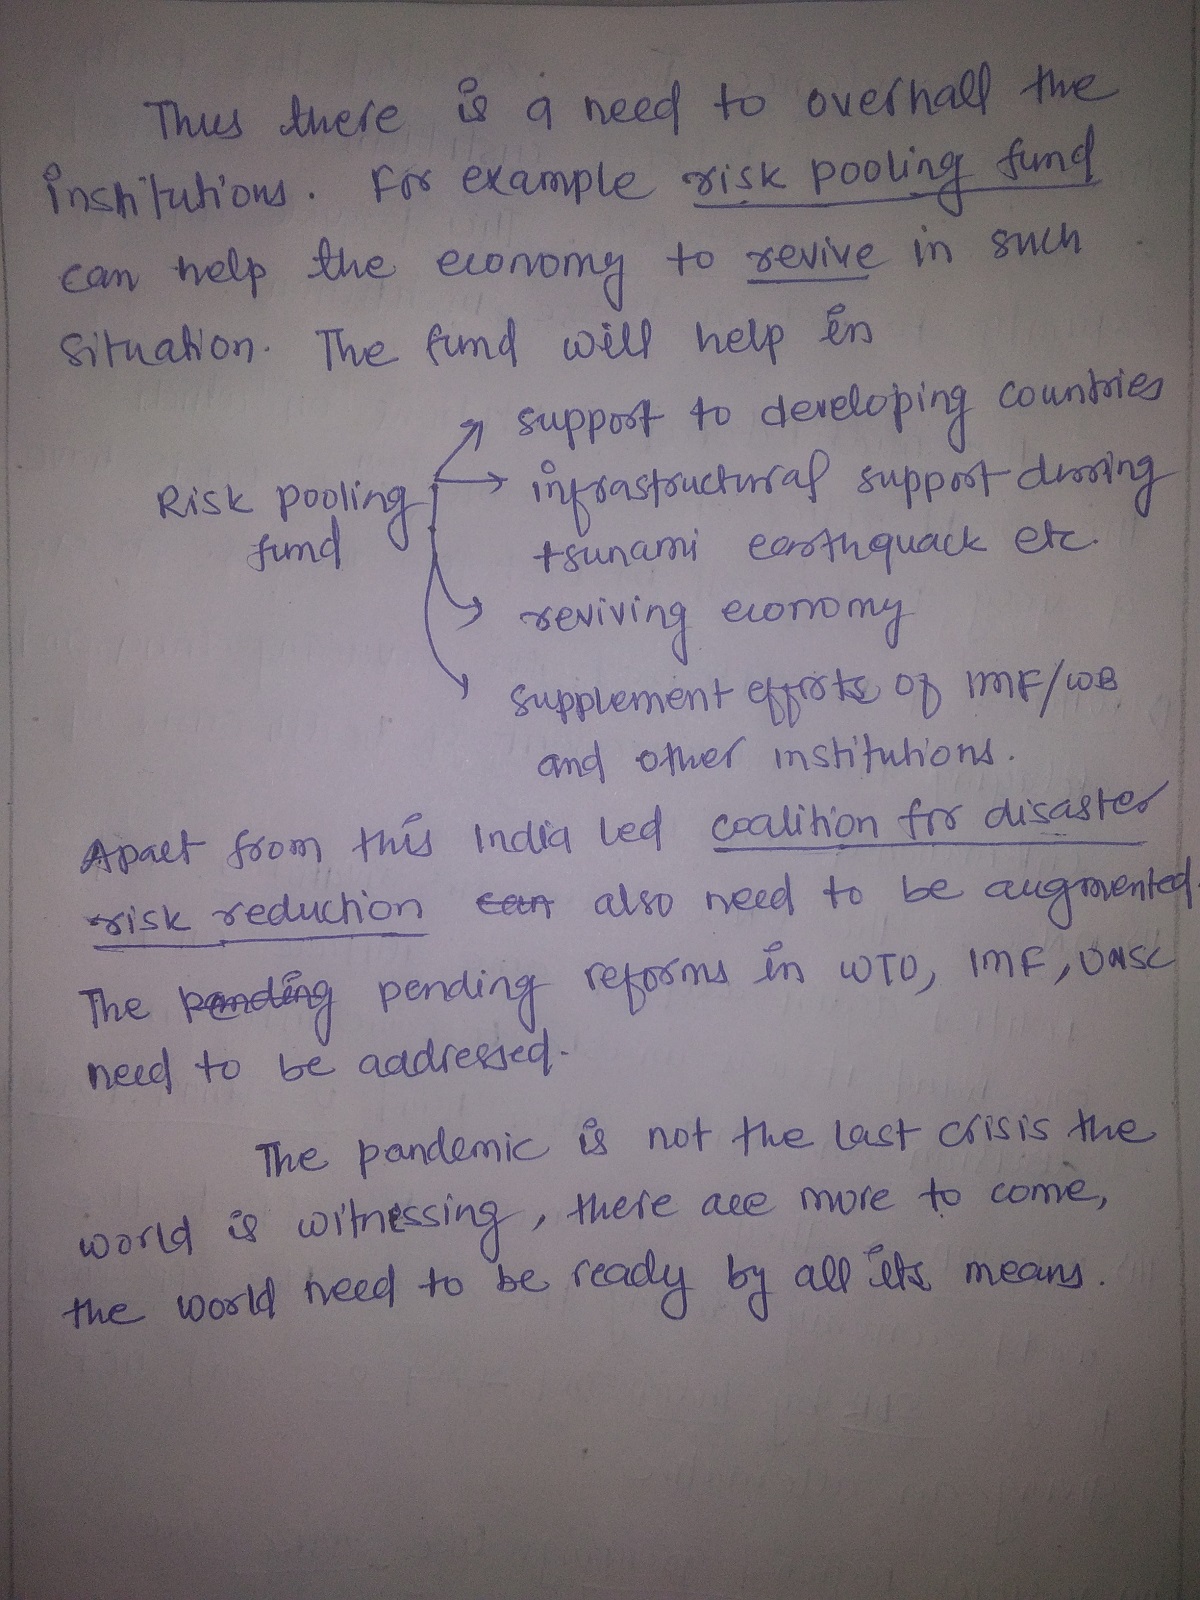 Thus there is a need to overhall the
institutions. For example risk pooling fund
can help the economy to revive in such
situation. The fund will help in
support to developing countries
Risk pooling
fund
infrastructural support during
tsunami earthquack etc.
reviving economy
supplement efforts of IMF/WB
and other institutions.
Apart from this India led coalition for disaster
risk reduction can also need to be augmented.
The pending pending reforms in WTO, IMF, UNSC
need to be addressed.
The pandemic is not the last crisis the
world is witnessing, there are more to come,
the world need to be ready by all its means.